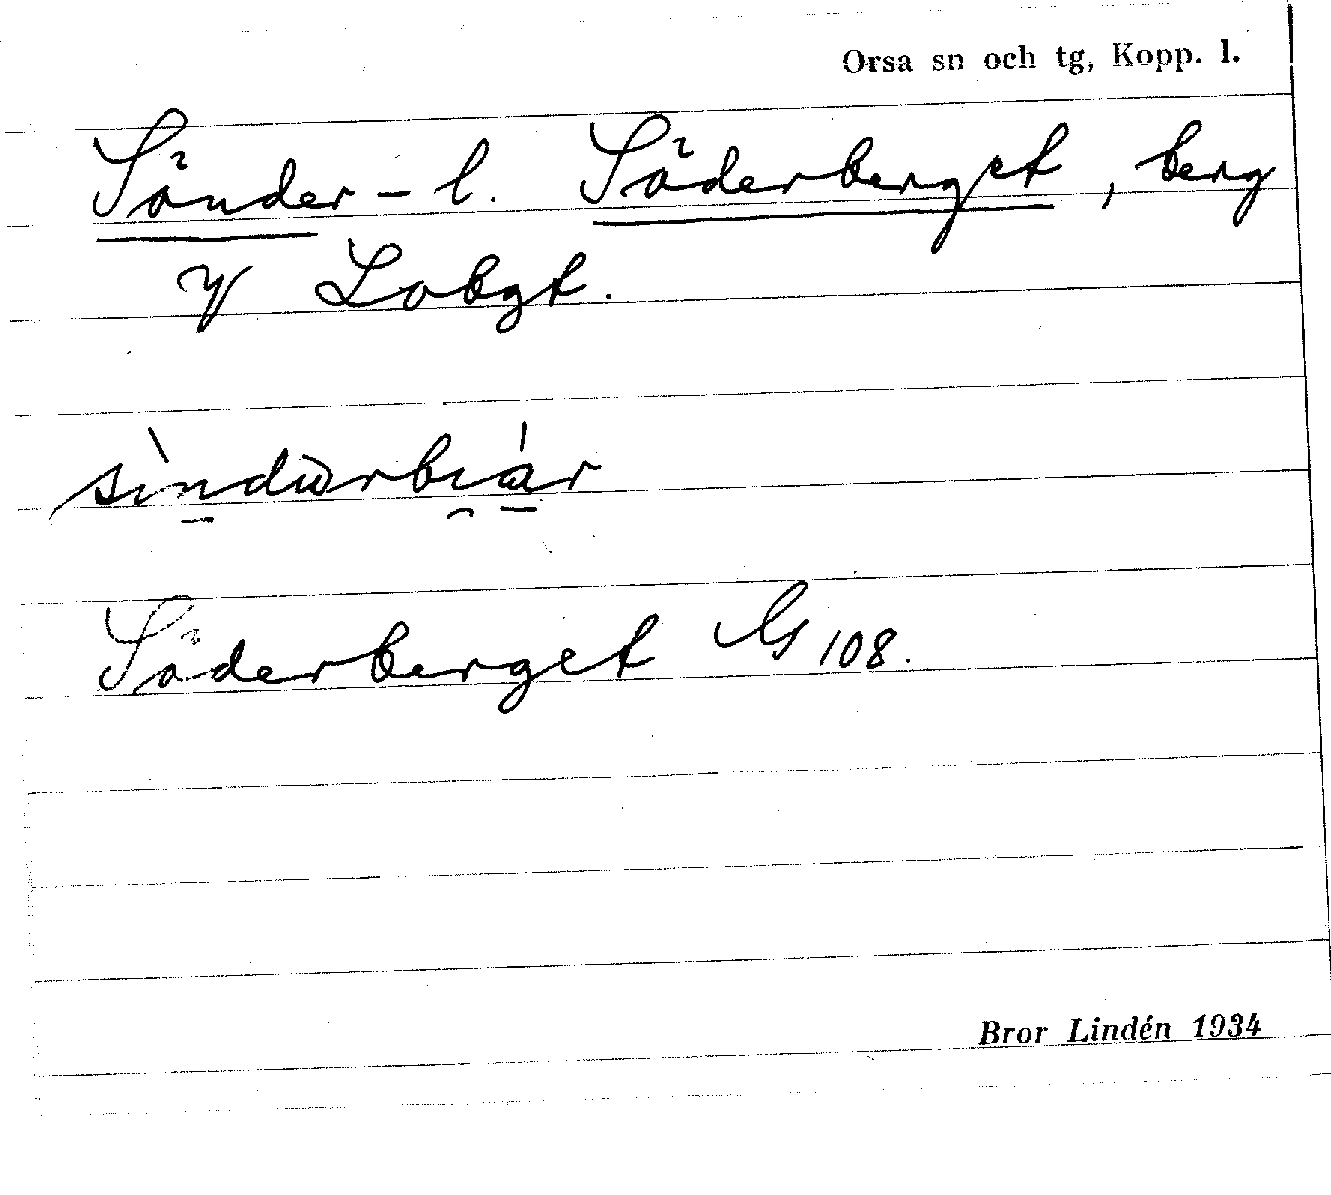 Orsa sn och tg, Kopp. l.
Sönder- l. Söderberget, berg
V Lobgt.
sìndùrbiár
Söderberget 108.
Bror Lindén 1934